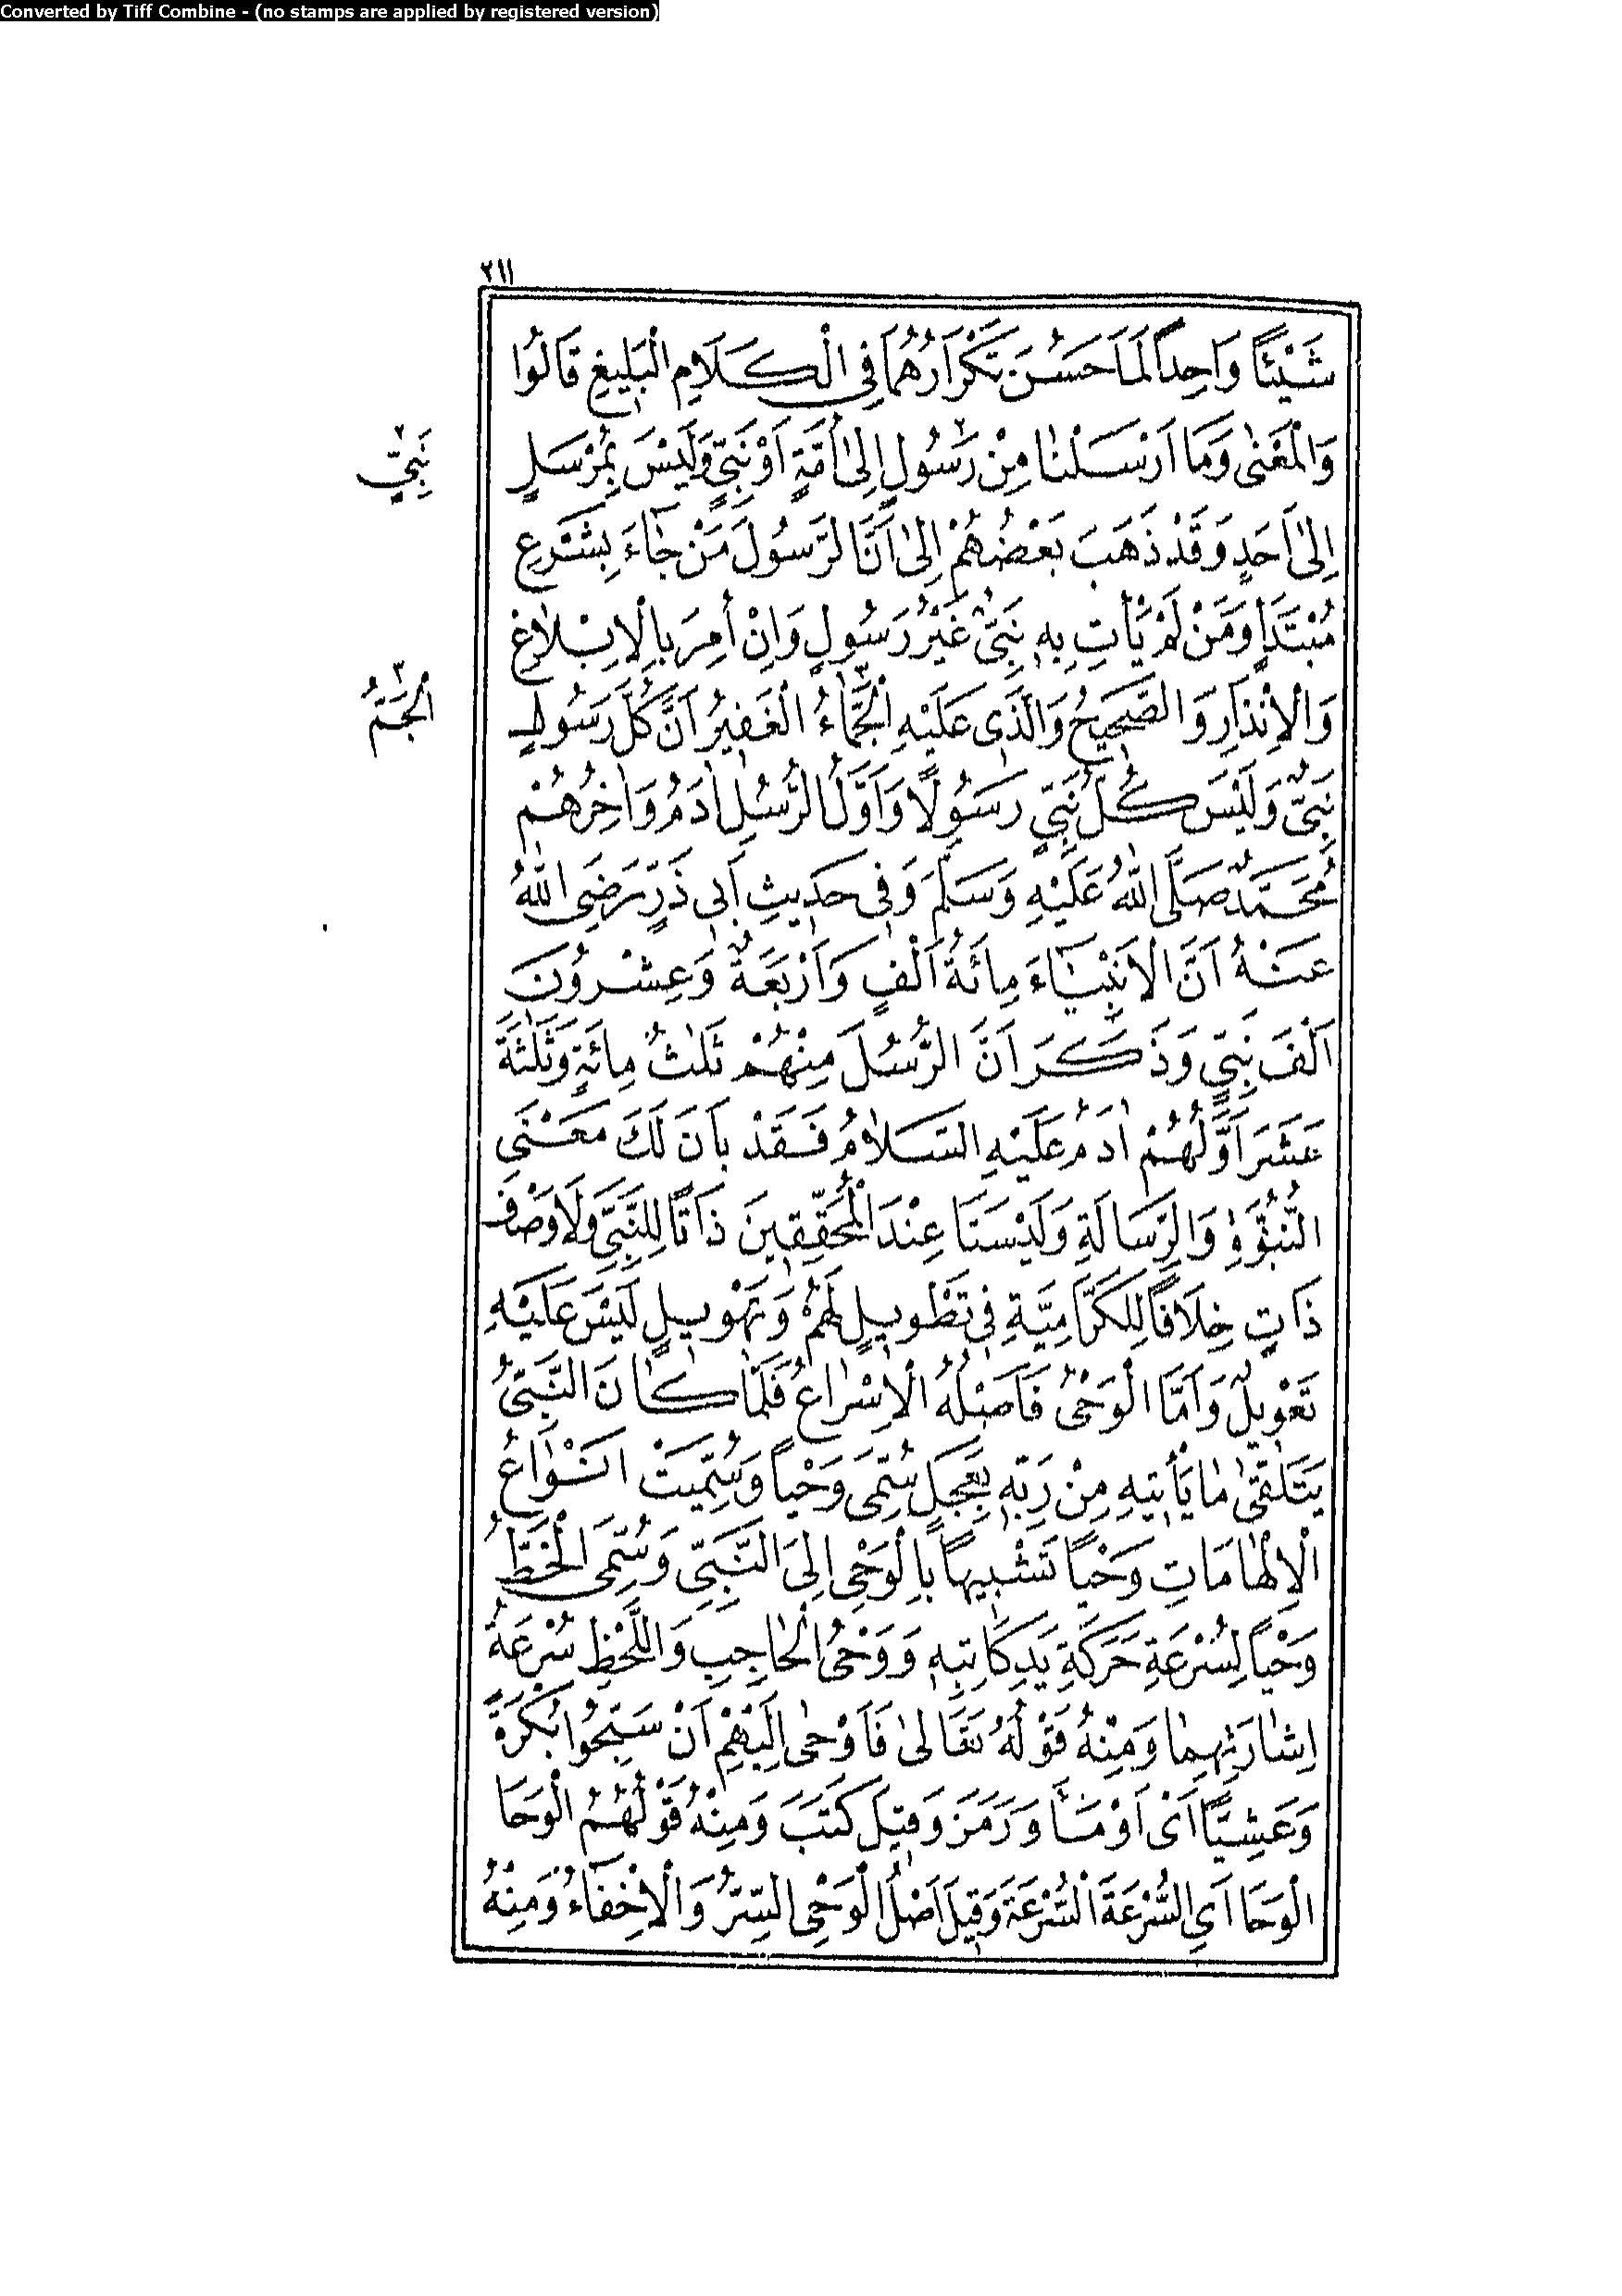 Converted by Tiff Combine - (no stamps are applied by registered version)
٢١١
شَيْئًا وَاحِدًا لَمَا حَسُنَ تَكْرَارُهُمَا فِي الْكَلَامِ الْبَلِيغِ قَالُوا
وَالْمَعْنٰى وَمَا اَرْسَلْنَا مِنْ رَسُولٍ اِلٰى اُمَّةٍ اَوْ نَبِيٍّ وَلَيْسَ بِمُرْسَلٍ
نَبِيٍّ
اِلٰى اَحَدٍ وَقَدْ ذَهَبَ بَعْضُهُمْ اِلٰى اَنَّ الرَّسُولَ مَنْ جَاءَ بِشَرْعٍ
مُبْتَدَإٍ وَمَنْ لَمْ يَأْتِ بِهِ نَبِيٌّ غَيْرُ رَسُولٍ وَاِنْ اُمِرَ بِالْاِبْلَاغِ
وَالْاِنْذَارِ وَالصَّحِيحُ وَالَّذِي عَلَيْهِ الْجَمَّاءُ الْغَفِيرُ اَنَّ كُلَّ رَسُولٍ
الْجَمُّ
نَبِيٌّ وَلَيْسَ كُلُّ نَبِيٍّ رَسُولًا وَاَوَّلُ الرُّسُلِ اٰدَمُ وَاٰخِرُهُمْ
مُحَمَّدٌ صَلَّى اللّٰهُ عَلَيْهِ وَسَلَّمَ وَفِي حَدِيثِ اَبِي ذَرٍّ رَضِيَ اللّٰهُ
عَنْهُ اَنَّ الْاَنْبِيَاءَ مِائَةُ اَلْفٍ وَاَرْبَعَةٌ وَعِشْرُونَ
اَلْفَ نَبِيٍّ وَذَكَرَ اَنَّ الرُّسُلَ مِنْهُمْ ثَلٰثُ مِائَةٍ وَثَلٰثَةَ
عَشَرَ اَوَّلُهُمْ اٰدَمُ عَلَيْهِ السَّلَامُ فَقَدْ بَانَ لَكَ مَعْنَى
النُّبُوَّةِ وَالرِّسَالَةِ وَلَيْسَتَا عِنْدَ الْمُحَقِّقِينَ ذَاتًا لِلنَّبِيِّ وَلَا وَصْفَ
ذَاتٍ خِلَافًا لِلْكَرَّامِيَّةِ فِي تَطْوِيلٍ لَهُمْ وَتَهْوِيلٍ لَيْسَ عَلَيْهِ
تَعْوِيلٌ وَاَمَّا الْوَحْيُ فَاَصْلُهُ الْاِسْرَاعُ فَلَمَّا كَانَ النَّبِيُّ
يَتَلَقّٰى مَا يَأْتِيهِ مِنْ رَبِّهِ بِعَجَلٍ سُمِّيَ وَحْيًا وَسُمِّيَتْ اَنْوَاعُ
الْاِلْهَامَاتِ وَحْيًا تَشْبِيهًا بِالْوَحْيِ اِلَى النَّبِيِّ وَسُمِّيَ الْخَطُّ
وَحْيًا لِسُرْعَةِ حَرَكَةِ يَدِ كَاتِبِهِ وَوَحْيُ الْحَاجِبِ وَاللَّحْظِ سُرْعَةُ
اِشَارَتِهِمَا وَمِنْهُ قَوْلُهُ تَعَالٰى فَاَوْحٰى اِلَيْهِمْ اَنْ سَبِّحُوا بُكْرَةً
وَعَشِيًّا اَيْ اَوْمَأَ وَرَمَزَ وَقِيلَ كَتَبَ وَمِنْهُ قَوْلُهُمُ الْوَحَا
الْوَحَا اَيِ السُّرْعَةَ السُّرْعَةَ وَقِيلَ اَصْلُ الْوَحْيِ السِّرُّ وَالْاِخْفَاءُ وَمِنْهُ